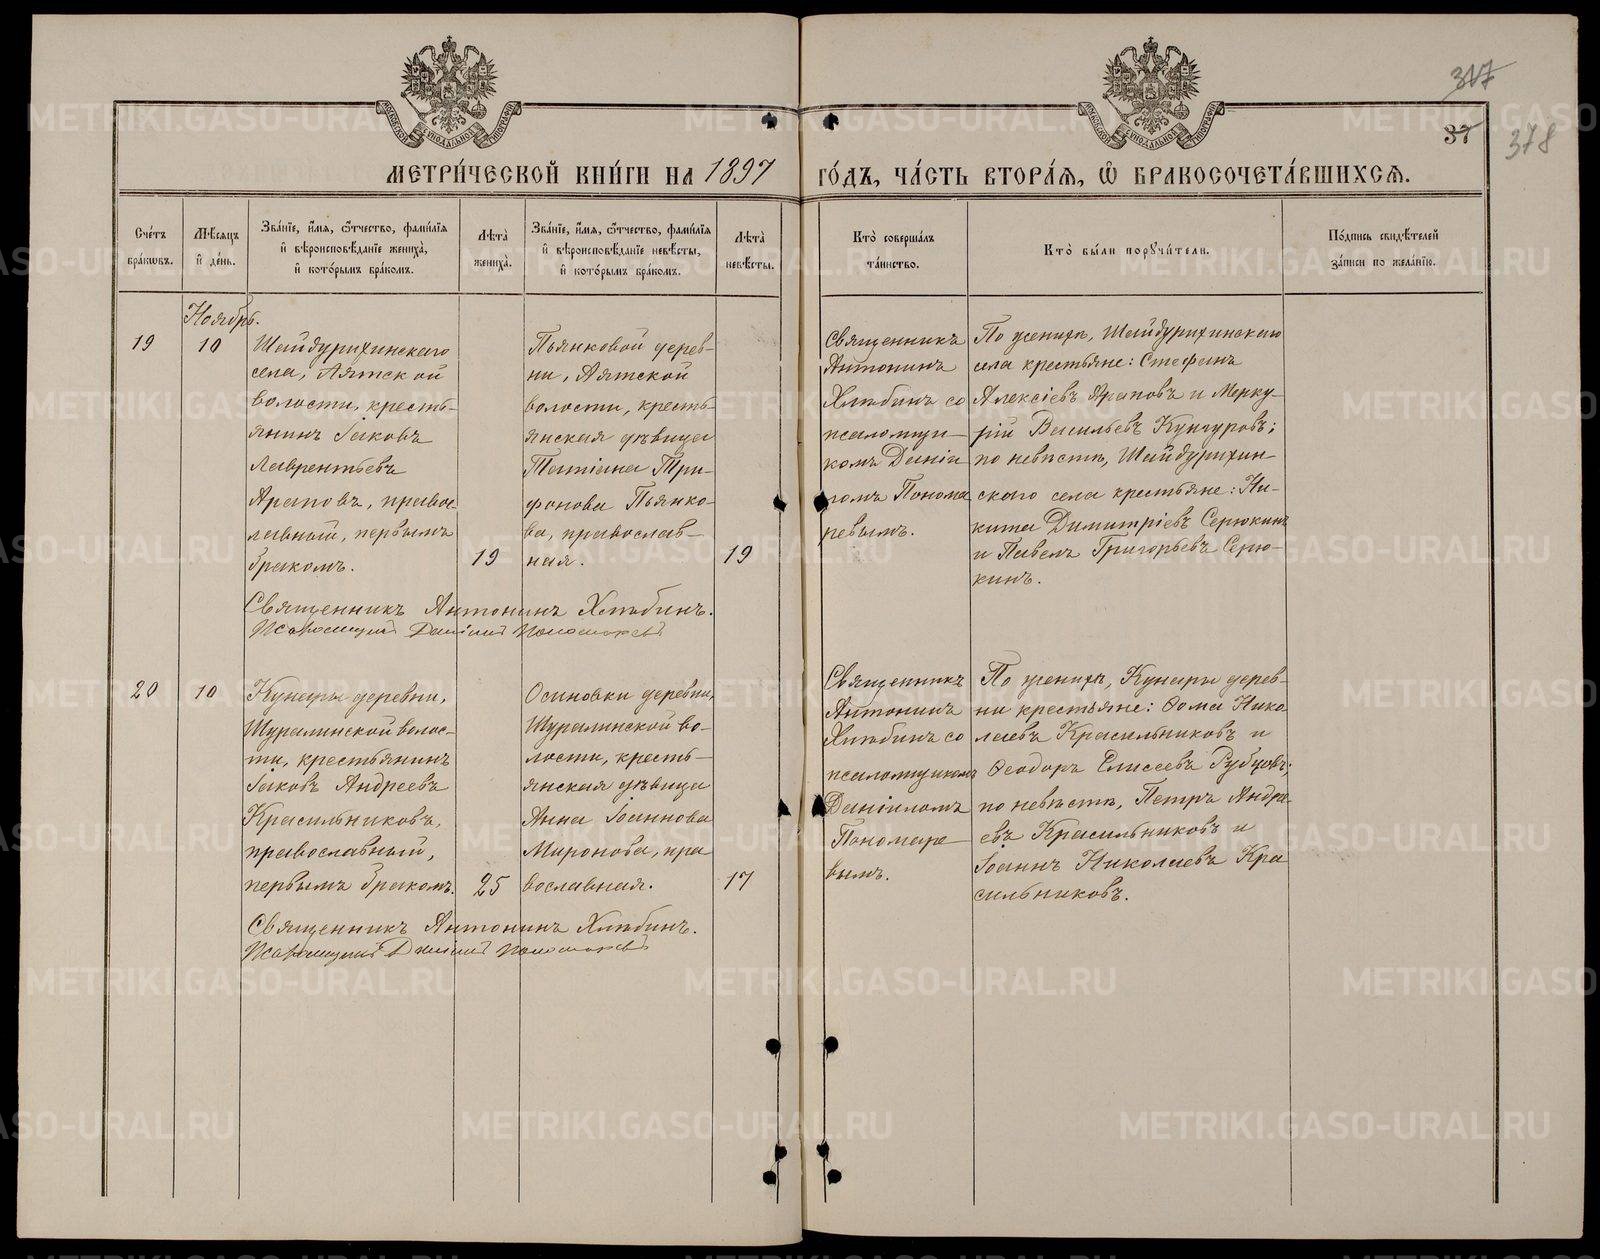 317
37
378
МОСКОВСКОЙ СѴНОДАЛЬНОЙ ТИПОГРАФІИ
МОСКОВСКОЙ СѴНОДАЛЬНОЙ ТИПОГРАФІИ
МЕТРИ́ЧЕСКОЙ КНИ́ГИ НА 1897 ГО́ДЪ, ЧА́СТЬ ВТОРА́Я, Ѿ БРАКОСОЧЕТА́ВШИХСѦ.
Сче́тъ бра́кѡвъ.
Мѣ́сяцъ и де́нь.
Зва́нїе, и́мя, ѻ́тчество, фами́лїя и вѣроисповѣ́данїе жениха̀, и кото́рымъ бра́комъ.
Лѣта̀ жениха̀.
Зва́нїе, и́мя, ѻ́тчество, фами́лїя и вѣроисповѣ́данїе невѣ́сты, и кото́рымъ бра́комъ.
Лѣта̀ невѣ́сты.
Кто̀ соверша́лъ та́инство.
Кто̀ бы́ли порꙋчи́тели.
По́дпись свидѣ́телей за́писи по жела́нїю.
Ноябрь.
19
10
Шайдурихинскаго
села, Аятской
волости, кресть-
янинъ Іаковъ
Лаврентьевъ
Араповъ, правос-
лавный, первымъ
бракомъ.
19
Пьянковой дерев-
ни, Аятской
волости, кресть-
янская дѣвица
Татіана Три-
фонова Пьянко-
ва, православ-
ная.
19
Священникъ
Антонинъ
Хлѣбинъ со
псаломщи-
комъ Даніи
ломъ Понома
ревымъ.
По женихѣ, Шайдурихинскаго
села крестьяне: Стефанъ
Алексіевъ Араповъ и Мерку-
рій Васильевъ Кунгуровъ;
по невѣстѣ, Шайдурихин-
скаго села крестьяне: Ни-
кита Димитріевъ Серюкинъ
и Павелъ Григорьевъ Серю-
кинъ.
Священникъ Антонинъ Хлѣбинъ.
Псаломщикъ Даніилъ Пономаревъ
20
10
Кунары деревни,
Шуралинской волос-
ти, крестьянинъ
Іаковъ Андреевъ
Красильниковъ,
православный,
первымъ бракомъ.
25
Осиновки деревни,
Шуралинской во-
лости, кресть-
янская дѣвица
Анна Іоаннова
Миронова, пра
вославная.
17
Священникъ
Антонинъ
Хлѣбинъ со
псаломщикомъ
Даніиломъ
Пономаре-
вымъ.
По женихѣ, Кунары дерев-
ни крестьяне: Ѳома Нико
лаевъ Красильниковъ и
Ѳеодоръ Елисеевъ Рубцовъ;
по невѣстѣ, Петръ Андре-
евъ Красильниковъ и
Іоаннъ Николаевъ Кра
сильниковъ.
Священникъ Антонинъ Хлѣбинъ.
Псаломщикъ Даніилъ Пономаревъ
METRIKI.GASO-URAL.RU